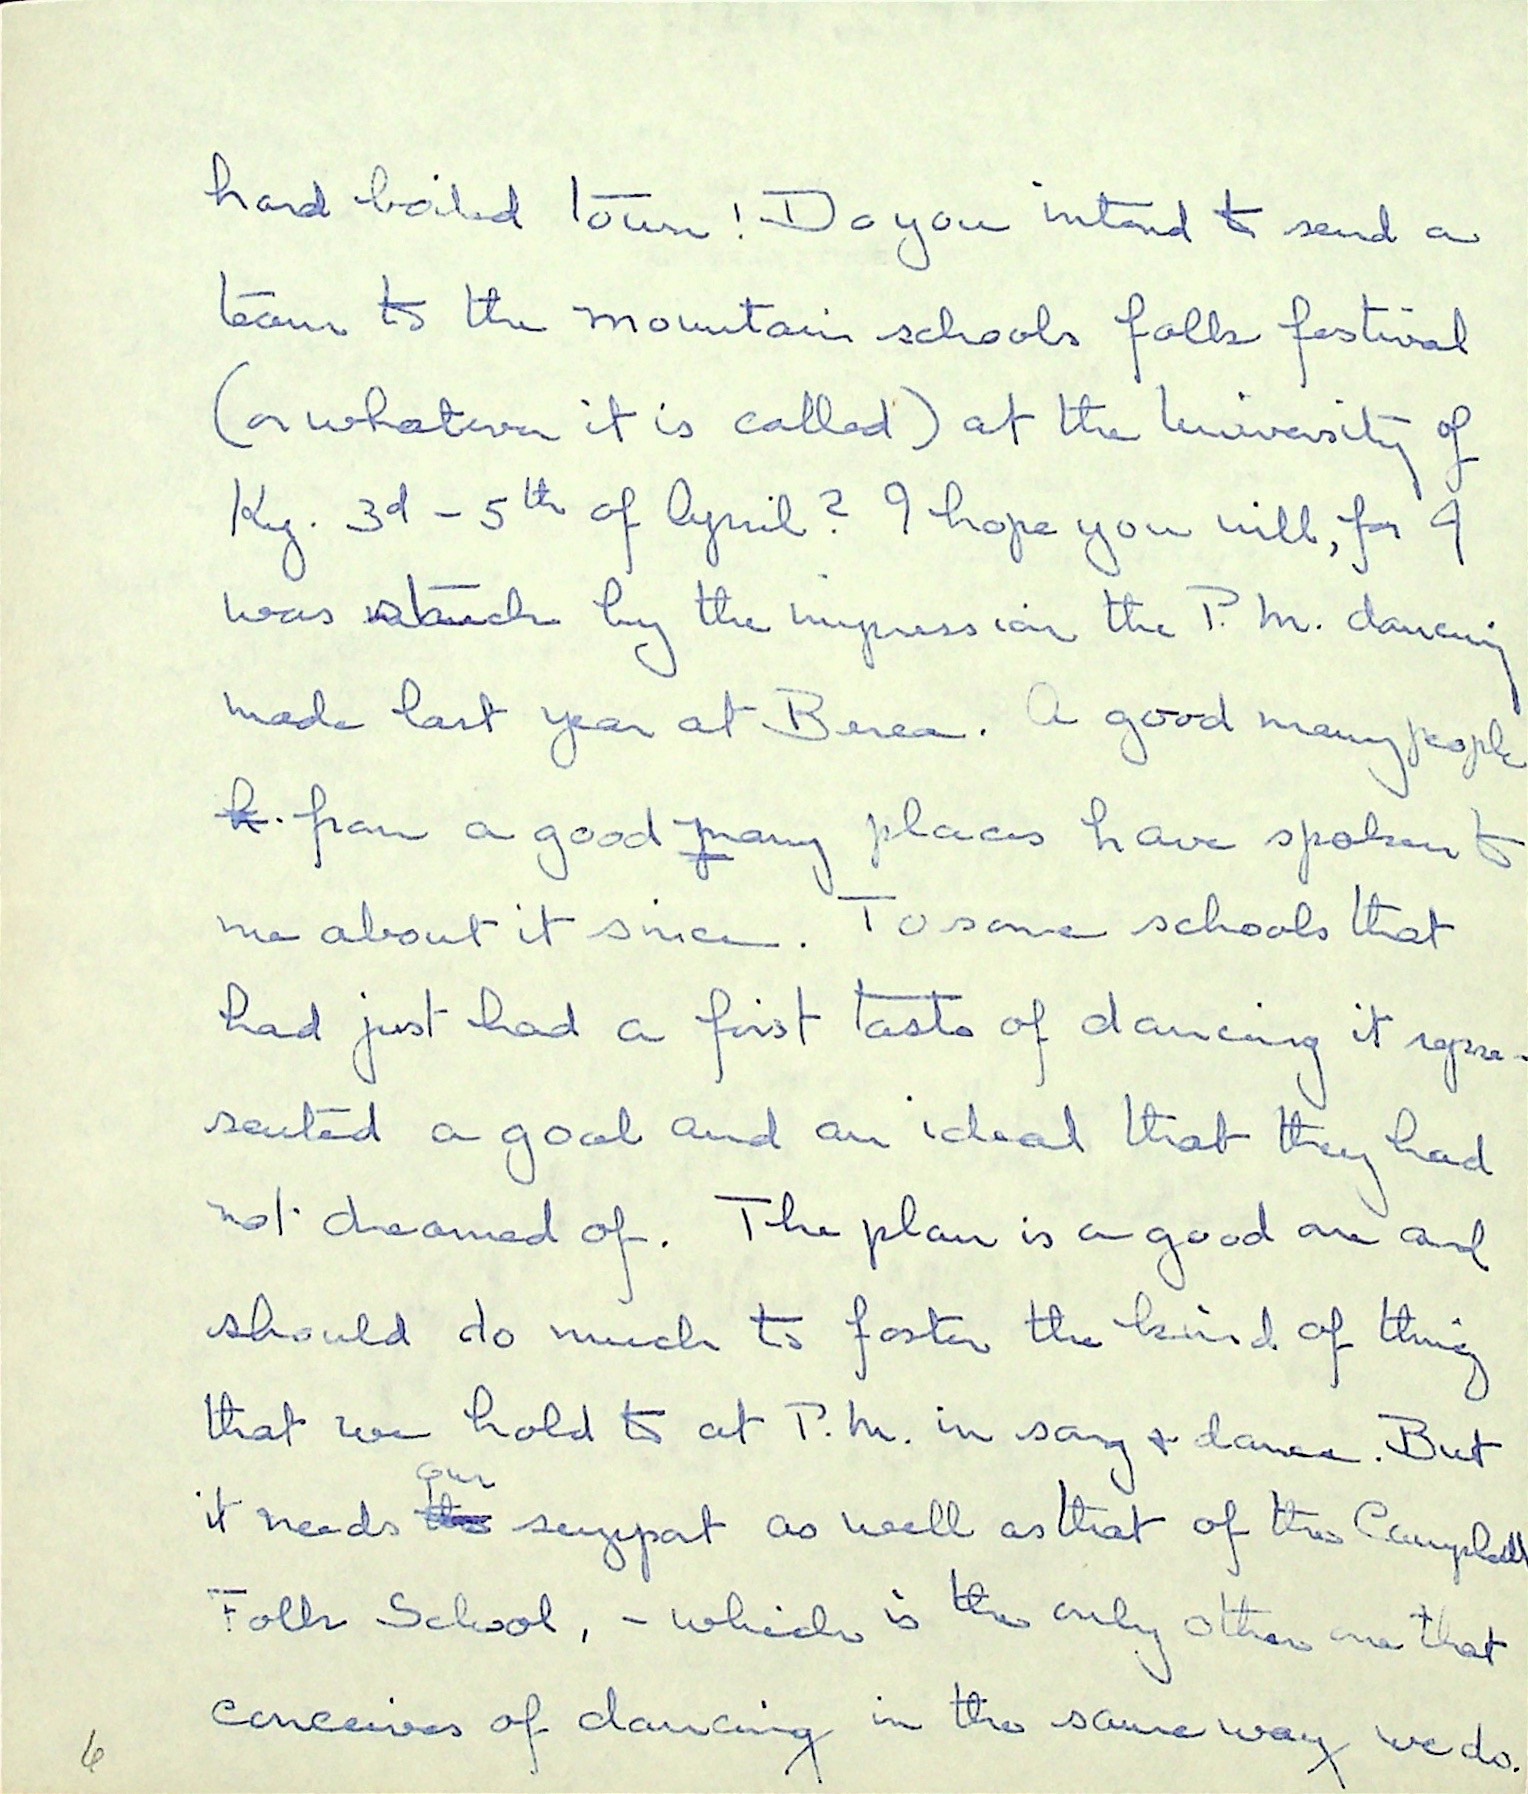 hard boiled town! Do you intend to send a
team to the mountain schools folk festival
(or whatever it is called) at the University of
Ky. 3d – 5th of April? I hope you will, for I
was struck by the impression the P. M. dancing
made last year at Berea. A good many people
from a good many places have spoken to
me about it since. To some schools that
had just had a first taste of dancing it repre-
sented a goal and an ideal that they had
not dreamed of. The plan is a good one and
should do much to foster the kind of thing
that we hold to at P. M. in song & dance. But
it needs our support as well as that of the Campbell
Folk School, – which is the only other one that
conceives of dancing in the same way we do.
6